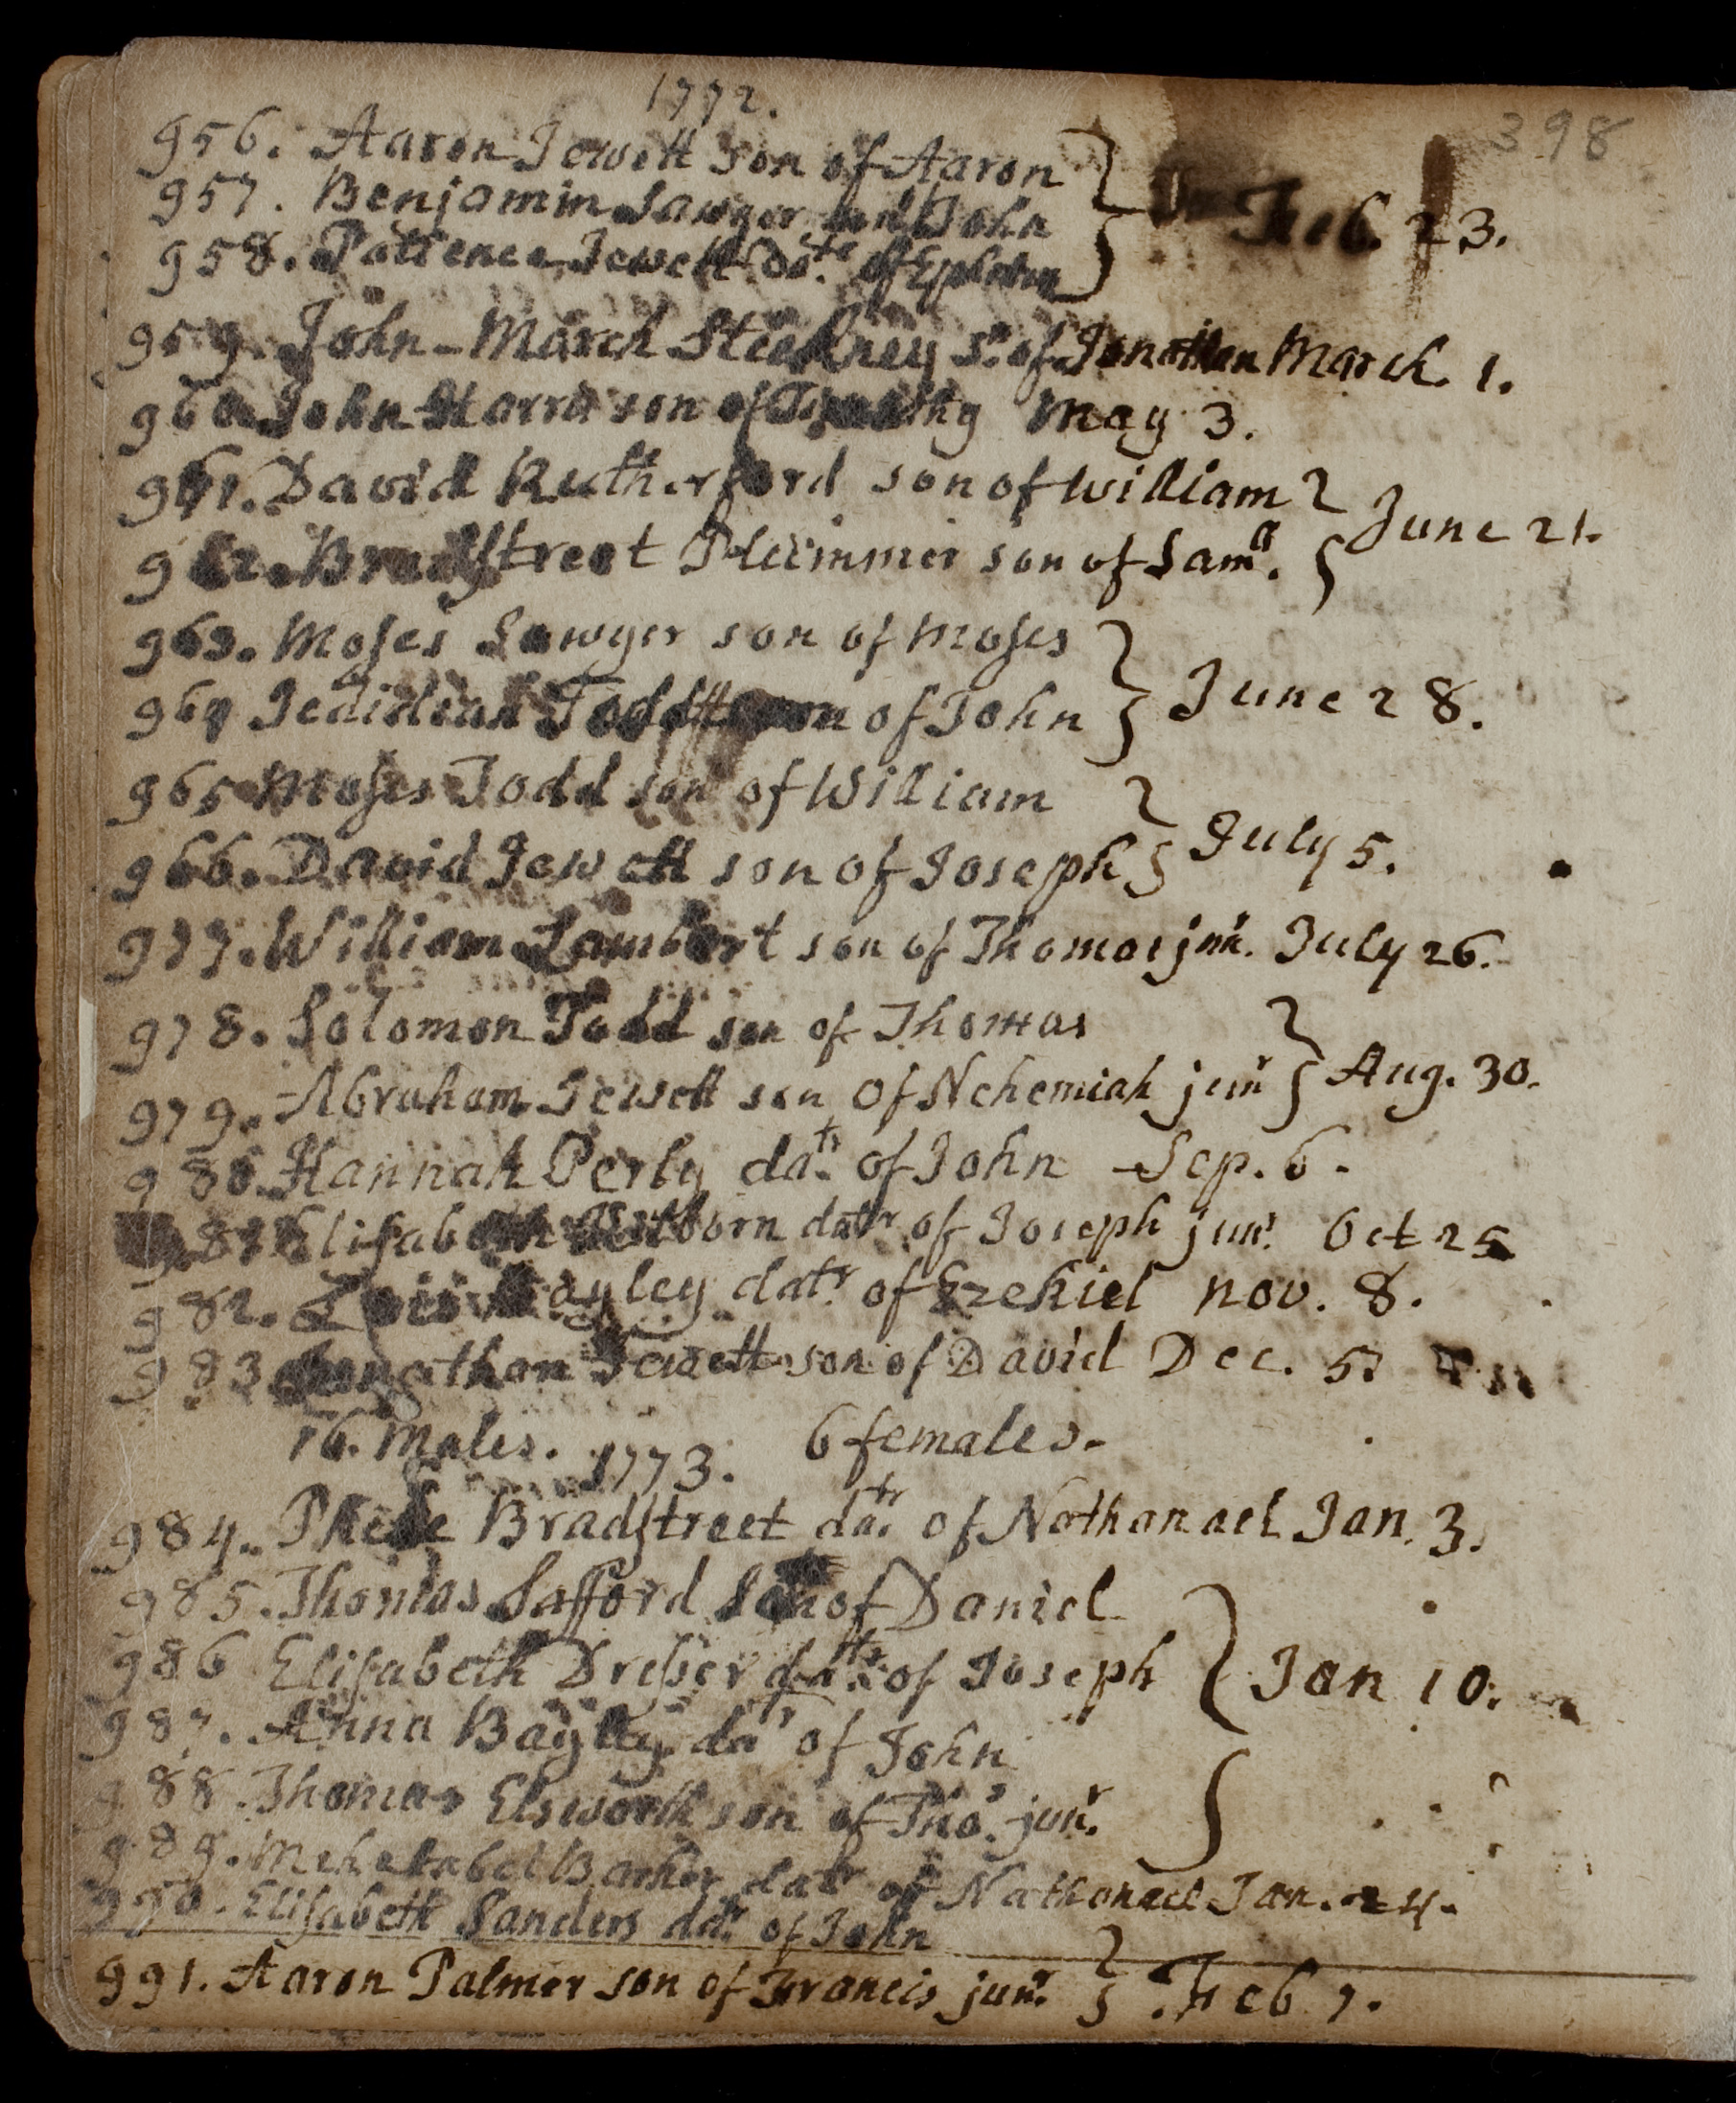 1772.
398
956. Aaron Jewett son of Aaron
957. Benjamin Sawyer John
Feb. 23.
958. Patience Jewett datr of Ephraim
959. John-March Stickney Sn. of Jonathan March. 1.
960. John Harris son of Timothy May 3.
961. David Rutherford son of William
June 21.
962. Bradstreet Plummer son of Samll.
963. Moses Sawyer son of Moses
June 28.
964 Jedidiah Todd son of John
965 Moses Todd son of William
July 5.
966. David Jewett son of Joseph
977. William Lambert son of Thomas junr. July 26.
978. Solomon Todd son of Thomas
979. Abraham Jewett son of Nehemiah junr Aug. 30.
980. Hannah Perly datr. of John Sep. 6.
981 Elisabeth datr of Joseph junr. Oct 25
982. Lois Bayley datr. of Ezekiel nov. 8.
983 Jonathan Jewett son of David Dec. 5?
16. Males. 6 females.
1773.
984. Phebe Bradstreet datr. of Nathanael Jan. 3.
985. Thomas Safford Son of Daniel
986 Elisabeth Dresser datr. of Joseph Jan 10.
987. Anna Bayley datr of John
988. Thomas Elsworth son of Thos. junr.
989. Mehetabel Barker datr of Nathanael Jan. 24.
990. Elisabeth Sanders datr. of John
991. Aaron Palmer son of Francis junr. Feb 7.